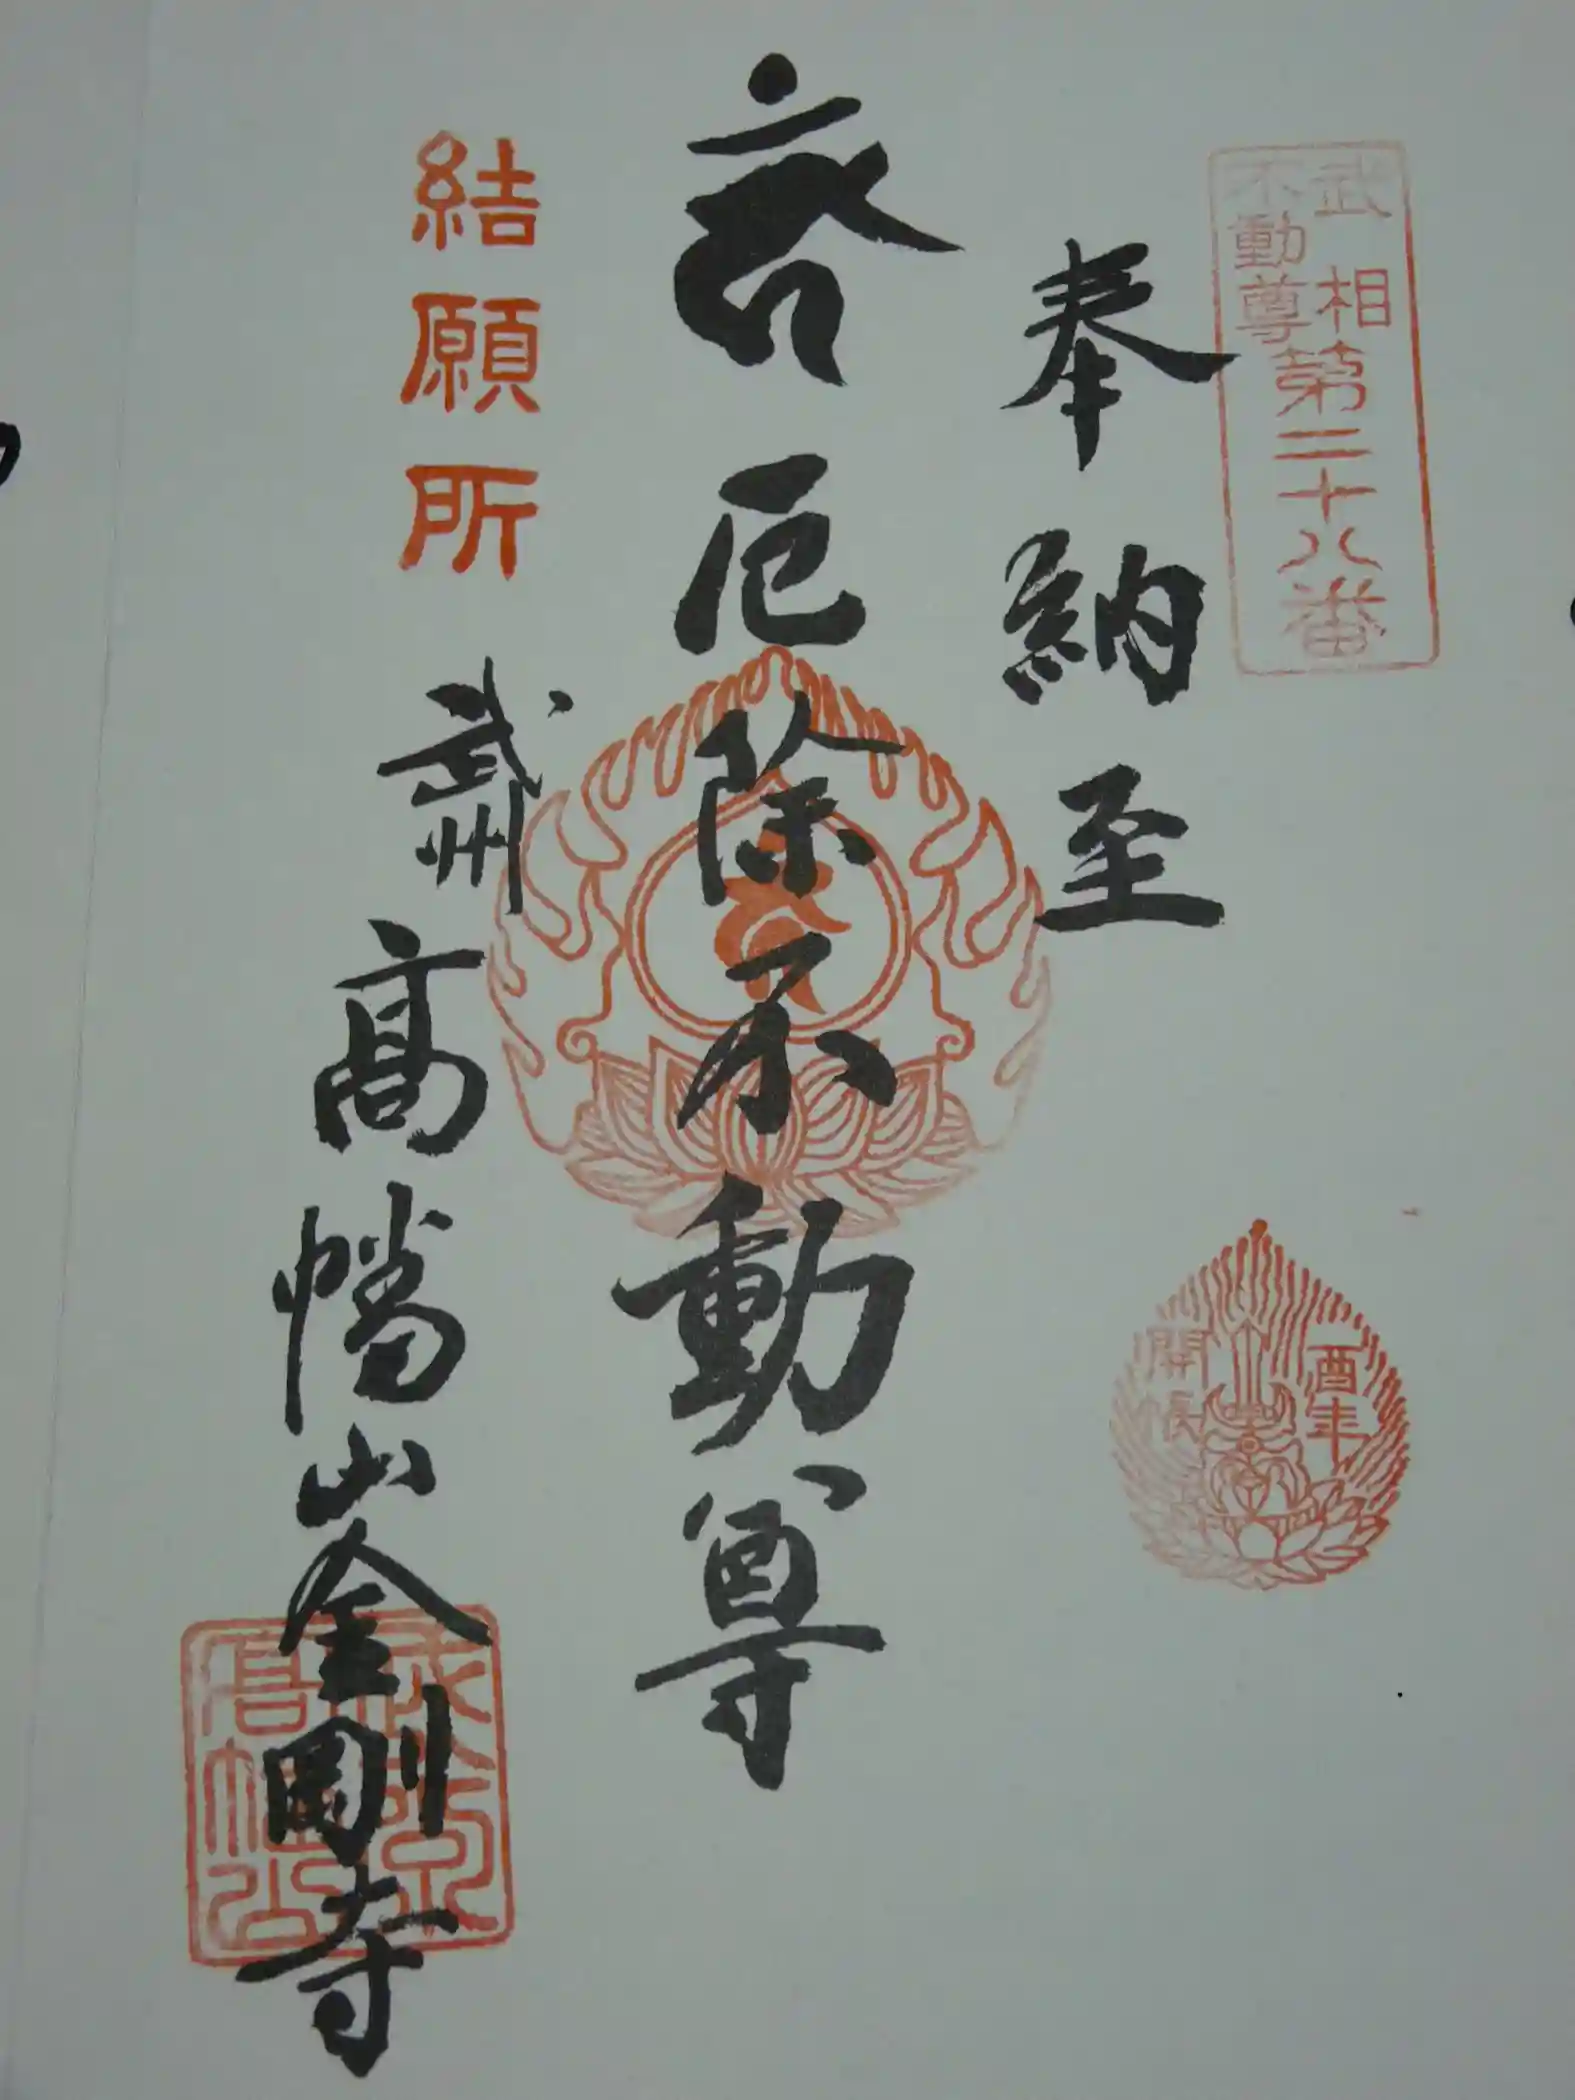 武相
不動尊
第二十八番
奉納至
酉年
開帳
厄除不動尊
結願所
武州
高幡山金剛寺